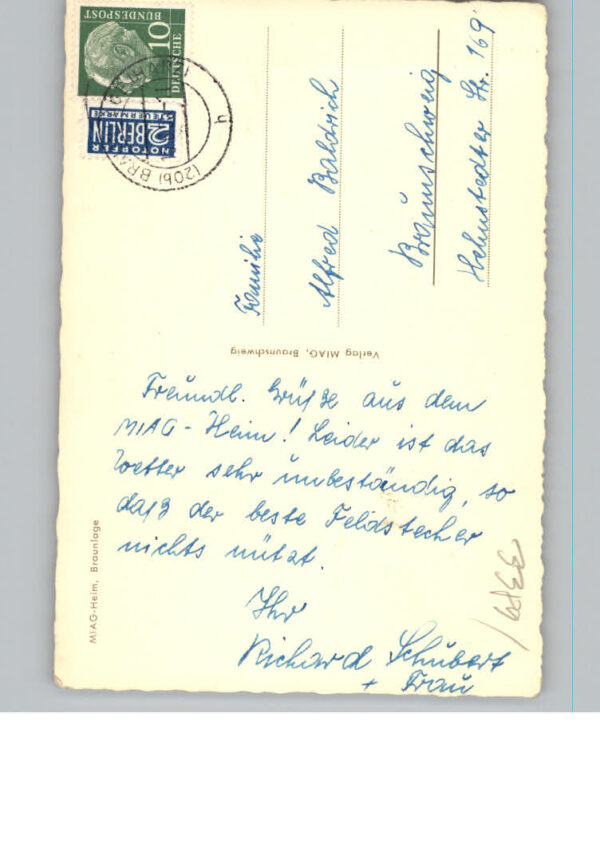 Freundl. Grüße aus dem
MIAG-Heim! Leider ist das
Wetter sehr unbeständig, so
daß der beste Feldstecher
nichts nützt.
Ihr
Richard Schubert
+ Frau
Familie
Alfred Baldrich
Braunschweig
Helmstedter Str. 169
Verlag MIAG, Braunschweig
MIAG-Heim, Braunlage
DEUTSCHE
BUNDESPOST
10
NOTOPFER
2 BERLIN
STEUERMARKE
(20b) BRA